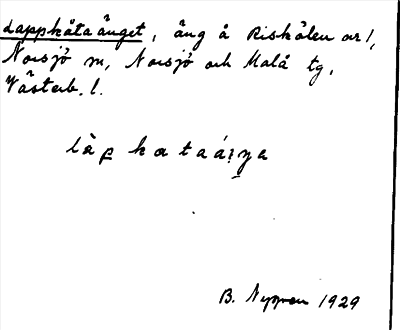 Lappkåtaänget, äng å Riskölen ar 1,
Norsjö sn, Norsjö och Malå tg,
Västerb. l.
làp kataáŋa
B. Nygren 1929